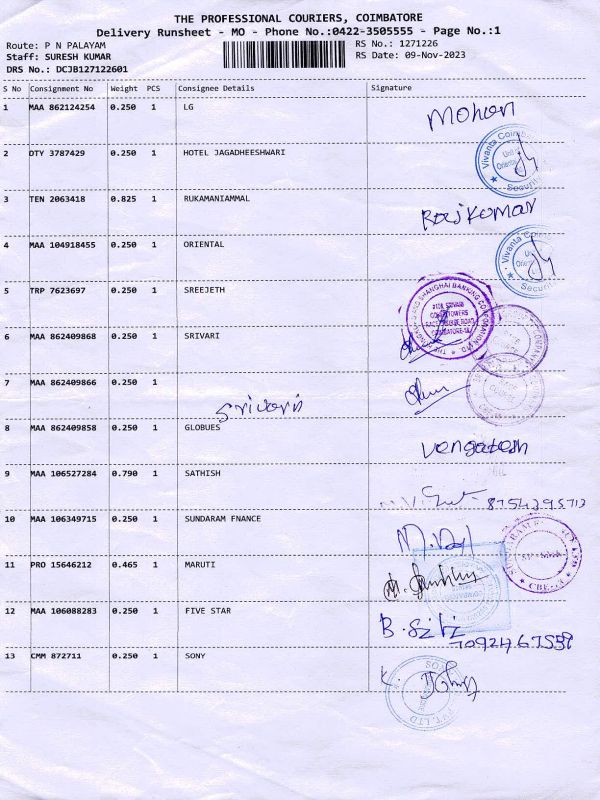 THE PROFESSIONAL COURIERS, COIMBATORE
Delivery Runsheet - MO - Phone No.:0422-3505555 - Page No.:1
Route: P N PALAYAM RS No.: 1271226
Staff: SURESH KUMAR RS Date: 09-Nov-2023
DRS No.: DCJB127122601
S No Consignment No Weight PCS Consignee Details Signature
1 MAA 862124254 0.250 1 LG Mohan
2 OTY 3787429 0.250 1 HOTEL JAGADHEESHWARI
3 TEN 2063418 0.825 1 RUKAMANIAMMAL Rajkumar
4 MAA 104918455 0.250 1 ORIENTAL
5 TRP 7623697 0.250 1 SREEJETH
6 MAA 862409868 0.250 1 SRIVARI
7 MAA 862409866 0.250 1
8 MAA 862409858 0.250 1 GLOBUES Vengatesh
9 MAA 106527284 0.790 1 SATHISH 8754295713
10 MAA 106349715 0.250 1 SUNDARAM FNANCE
11 PRO 15646212 0.465 1 MARUTI
12 MAA 106088283 0.250 1 FIVE STAR
13 CMM 872711 0.250 1 SONY